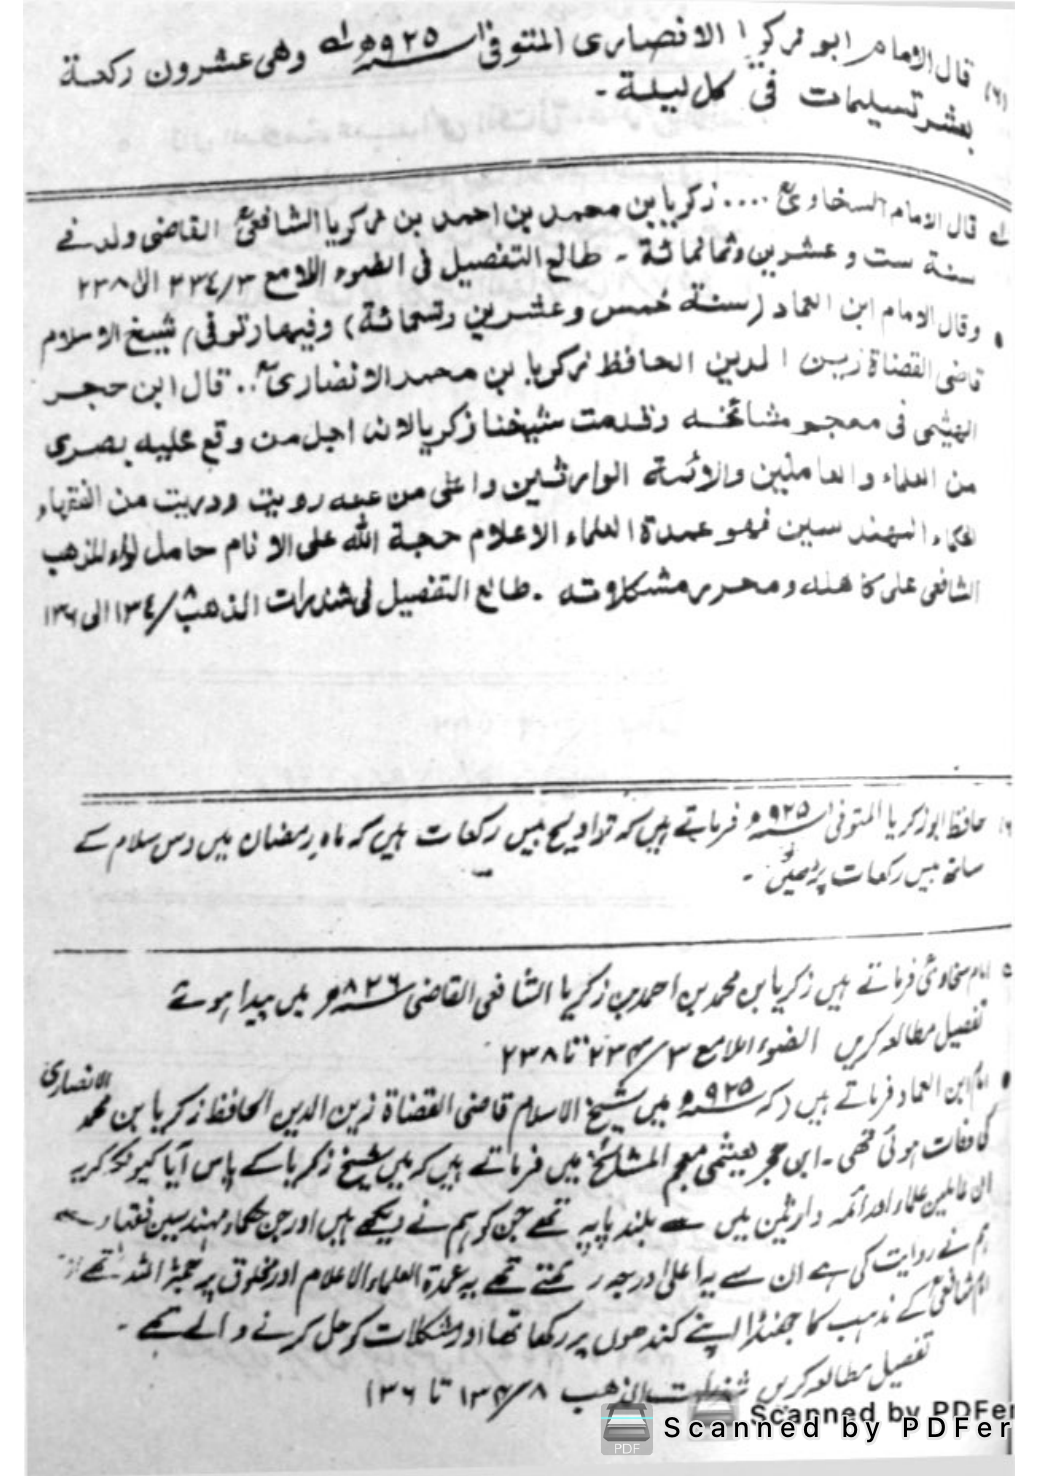 (٦) قال الامام ابو زكريا الانصارى المتوفى ٩٢٥ه له وهى عشرون ركعة
بعشر تسليمات فى كل ليلة -
له قال الامام السخاوىؒ .... زكريا بن محمد بن احمد بن زكريا الشافعىؒ القاضى ولد فى
سنة ست و عشرين وثمانمائة - طالع التفصيل فى الضوء اللامع ٢٣٤/٣ الى ٢٣٨
• وقال الامام ابن العماد (سنة خمس و عشرين وتسعمائة) وفيها (توفى) شيخ الاسلام
قاضى القضاة زين الدين الحافظ زكريا بن محمد الانصارىؒ .. قال ابن حجر
الهيثمى فى معجم مشائخه وقدمت شيخنا زكريا لانه اجل من وقع عليه بصرى
من العلماء و العاملين والائمة الوارثين واعلى من عنه رويت ودريت من الفقهاء
الحكماء المهندسين فهو عمدة العلماء الاعلام حجة الله على الانام حامل لواء المذهب
الشافعى على كاهله ومحرر مشكلاته . طالع التفصيل فى شذرات الذهب ١٣٤/ الى ١٣٦
حافظ ابوزکریا المتوفی ٩٢٥ھ فرماتے ہیں کہ تراویح بیس رکعات ہیں کہ ماہ رمضان میں دس سلام کے
ساتھ بیس رکعات پڑھیں گے -
امام سخاویؒ فرماتے ہیں زکریا بن محمد بن احمد بن زکریا الشافعی القاضی ٨٢٦ھ میں پیدا ہوئے
تفصیل مطالعہ کریں الضوء اللامع ٢٣٤/٣ تا ٢٣٨
• امام ابن العماد فرماتے ہیں (کہ ٩٢٥ھ میں شیخ الاسلام قاضی القضاة زین الدین الحافظ زکریا بن محمد الانصاری
کا وفات ہوئی تھی - ابن حجر ہیثمی معجم المشائخ میں فرماتے ہیں کہ میں شیخ زکریا کے پاس آیا کیونکہ یہ
ان عاملین علماء اور ائمہ وارثین میں سے بلند پایہ تھے جن کو ہم نے دیکھے ہیں اور جن حکماء مہندسین فقہاء سے
ہم نے روایت کی ہے ان سے یہ اعلیٰ درجہ رکھتے تھے یہ عمدة العلماء الاعلام اور مخلوق پر حجة اللہ تھے
امام شافعیؒ کے مذہب کا جھنڈا اپنے کندھوں پر رکھا تھا اور مشکلات کو حل کرنے والے تھے -
تفصیل مطالعہ کریں شذرات الذهب ١٣٤/٨ تا ١٣٦)
Scanned by PDFer
Scanned by PDFer
PDF